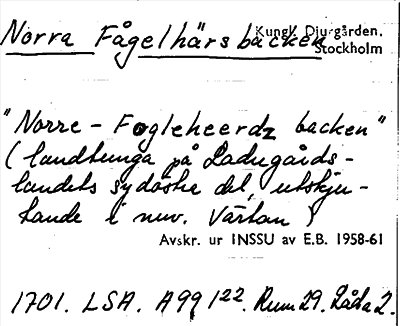 Norra Fågelhärsbacken Kungl. Djurgården.
Stockholm
"Norre-Fogleheerdz backen"
(landtunga på Ladugårds-
landets sydöstra del, utskju-
tande i nuv. Värtan)
Avskr. ur INSSU av E.B. 1958-61
1701. LSA. A99 122. Rum 29. Låda 2.